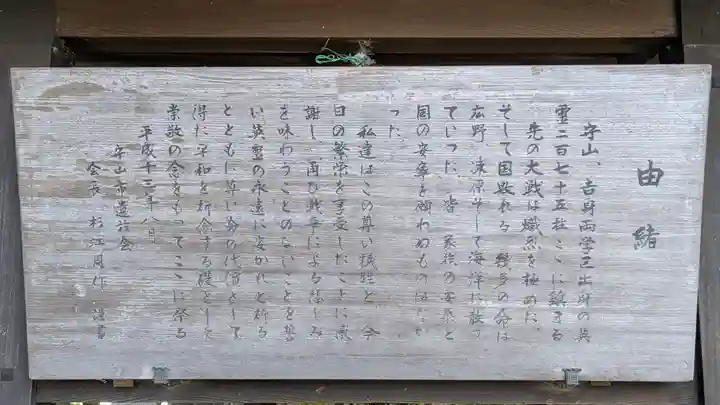 由緒
守山、吉身両学区出身の英
霊二百七十五柱ここに鎮まる
先の大戦は熾烈を極めた、
そして国敗れる 幾多の命は
広野、凍原そして海洋に散っ
ていった。皆 家族の安泰と
国の安寧を願わぬものはなか
った。
私達はこの尊い犠牲と 今
日の繁栄を享受したことに感
謝し 再び戦争による苦しみ
を味わうことのないことを誓
い英霊の永遠に安かれと祈る
とともに尊い命の代償として
得た平和を祈念する礎として
崇敬の念をもってここに祭る
平成十二年八月
守山市遺族会
会長 杉江 作 謹書